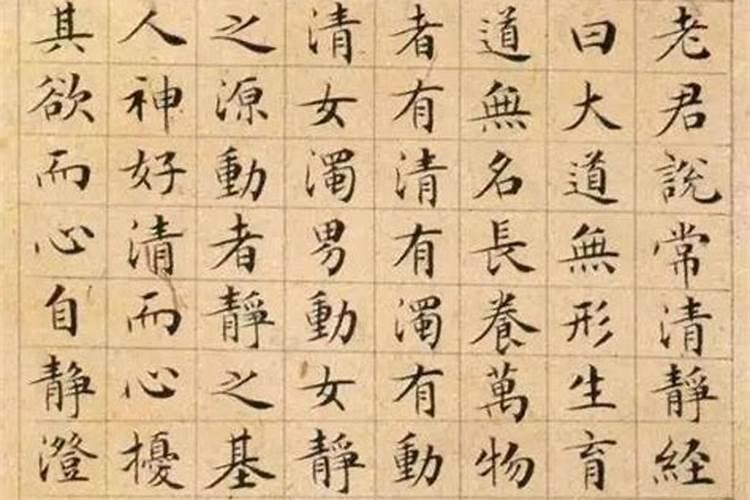 老君說常清靜經
曰大道無形生育
道無名長養萬物
者有清有濁有動
清女濁男動女靜
之源動者靜之基
人神好清而心擾
其欲而心自静澄